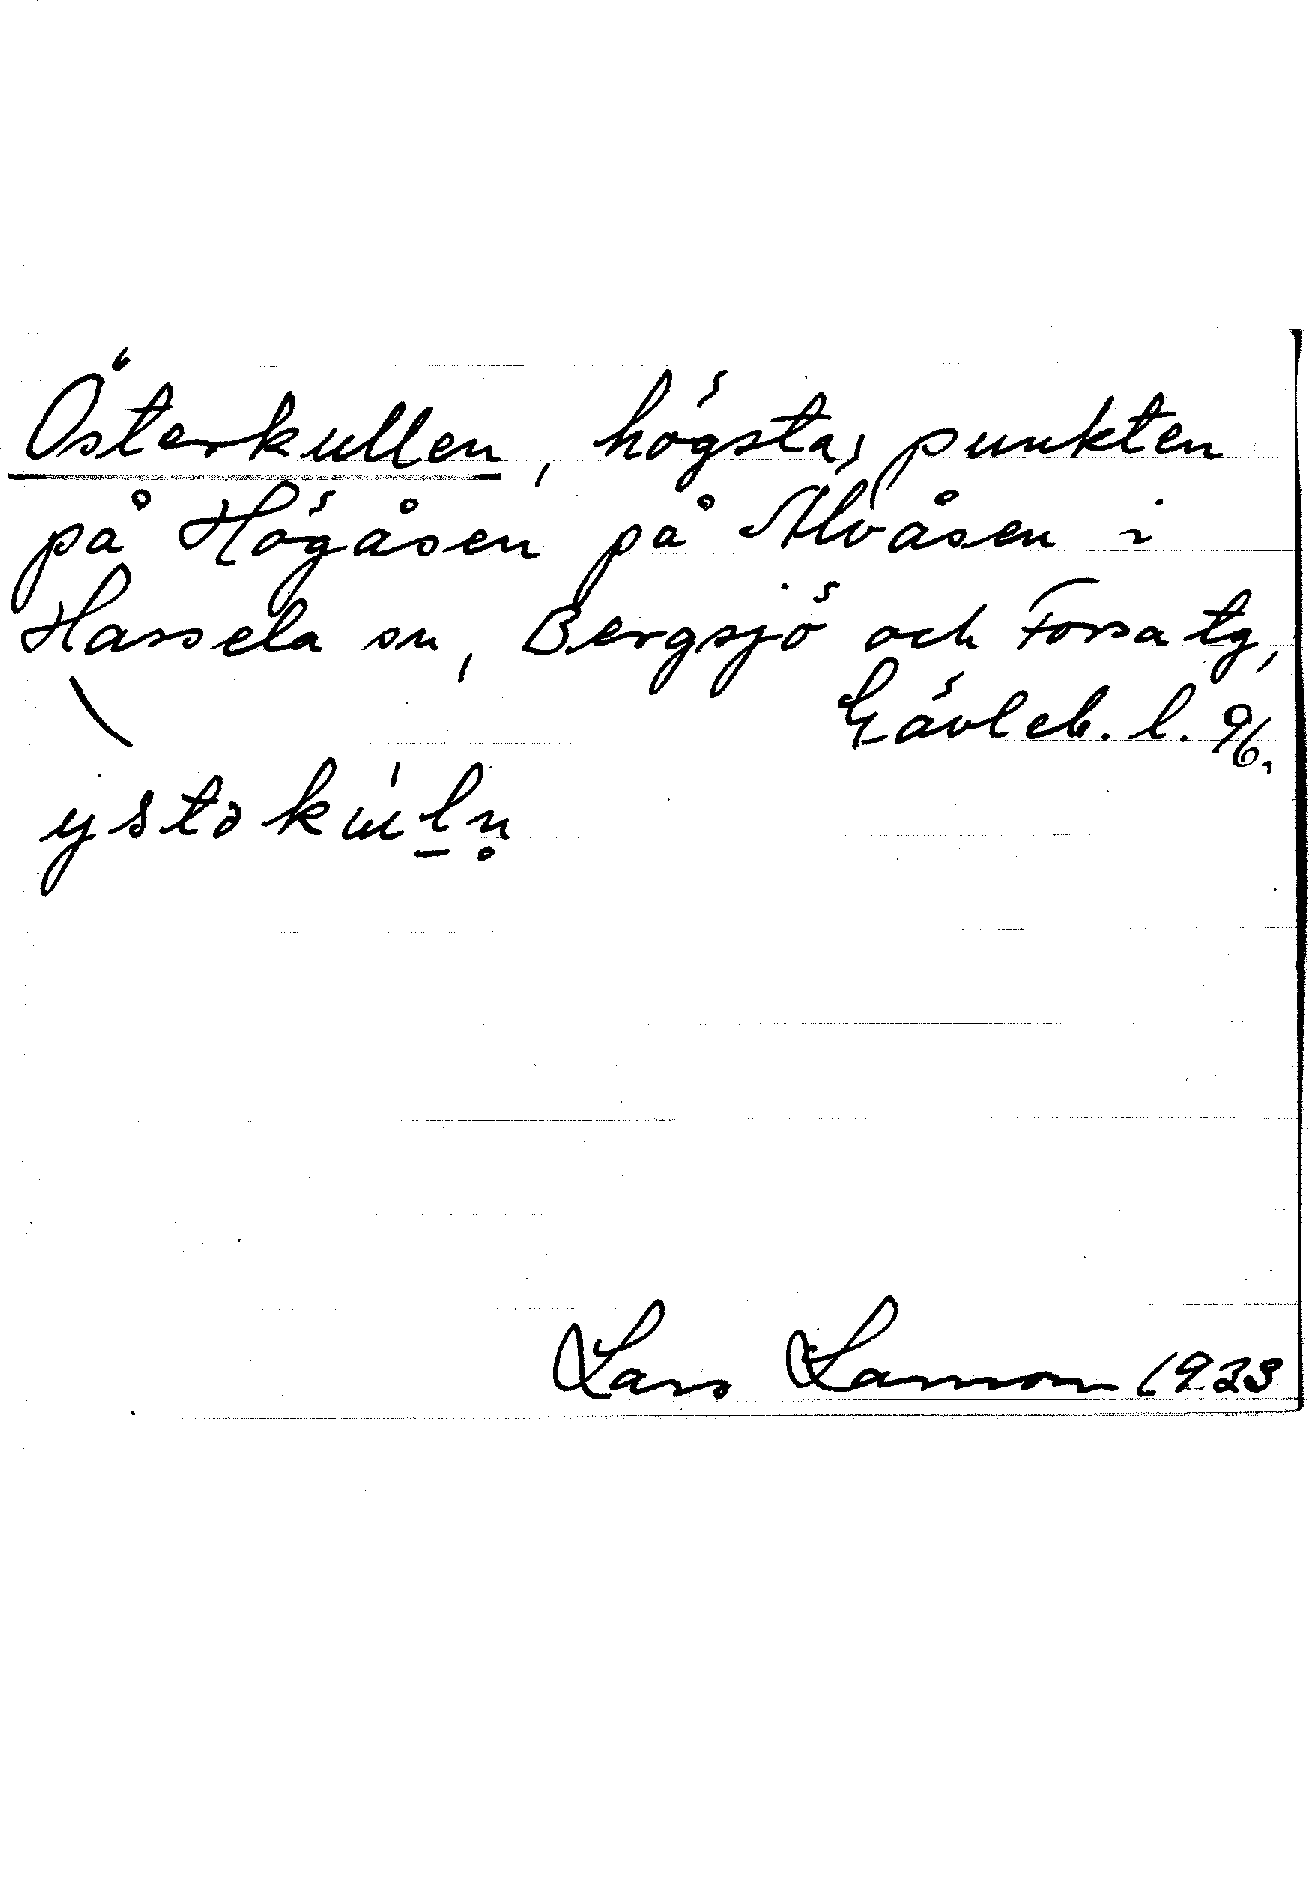 Österkullen, högsta punkten
på Högåsen på Älvåsen i
Hassela sn, Bergsjö och Forsa tg,
Gävleb. l.
ystəku̍l̲n̥
Lars Larsson 1923